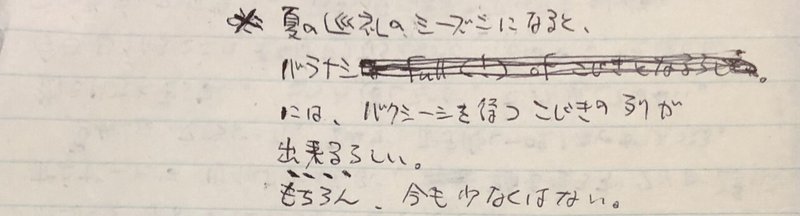 ※ 夏の巡礼のシーズンになると、
バラナシ
には、バクシーシを待つこじきの列が
出来るらしい。
もちろん、今も少なくはない。